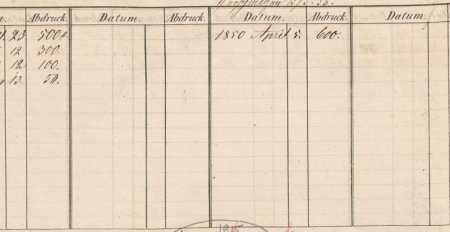 Abdruck. Datum. Abdruck. Datum. Abdruck. Datum.
23 500 1850 April 5. 600.
12 300.
12 100.
13 50.